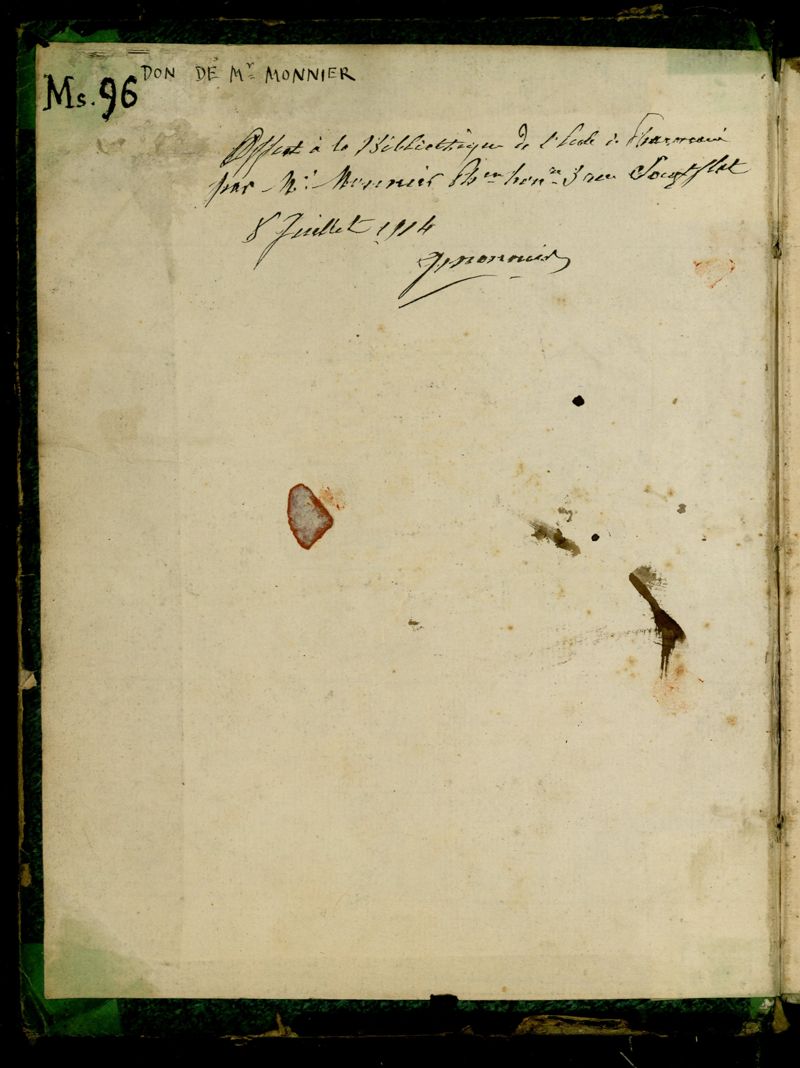 Ms. 96
DON DE Mr MONNIER
Offert à la Bibliothèque de l'Ecole de Pharmacie
par Mr Monnier Phen honre 3 rue Soufflot
8 Juillet 1914
Jmonnier